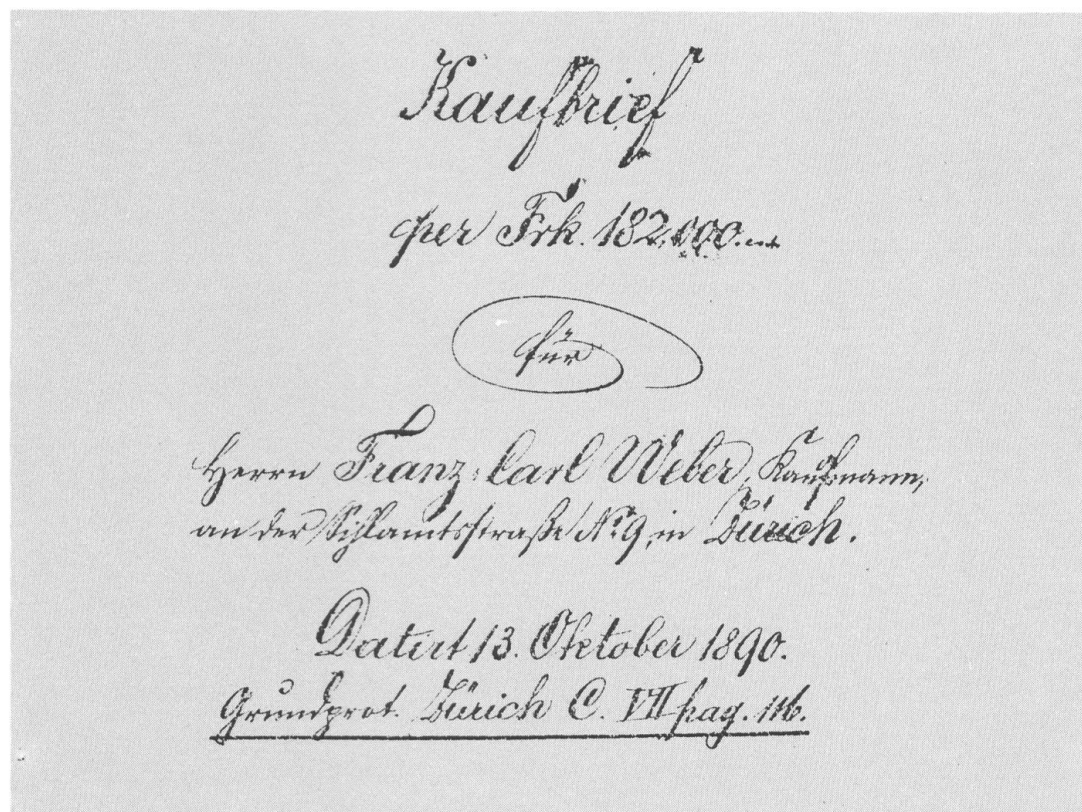 Kaufbrief
per Frk. 182,000.-
für
Herrn Franz Carl Weber, Kaufmann,
an der Sihlamtsstraße No. 9, in Zürich.
Datirt 13. Oktober 1890.
Grundprot. Zürich C. VII pag. 116.